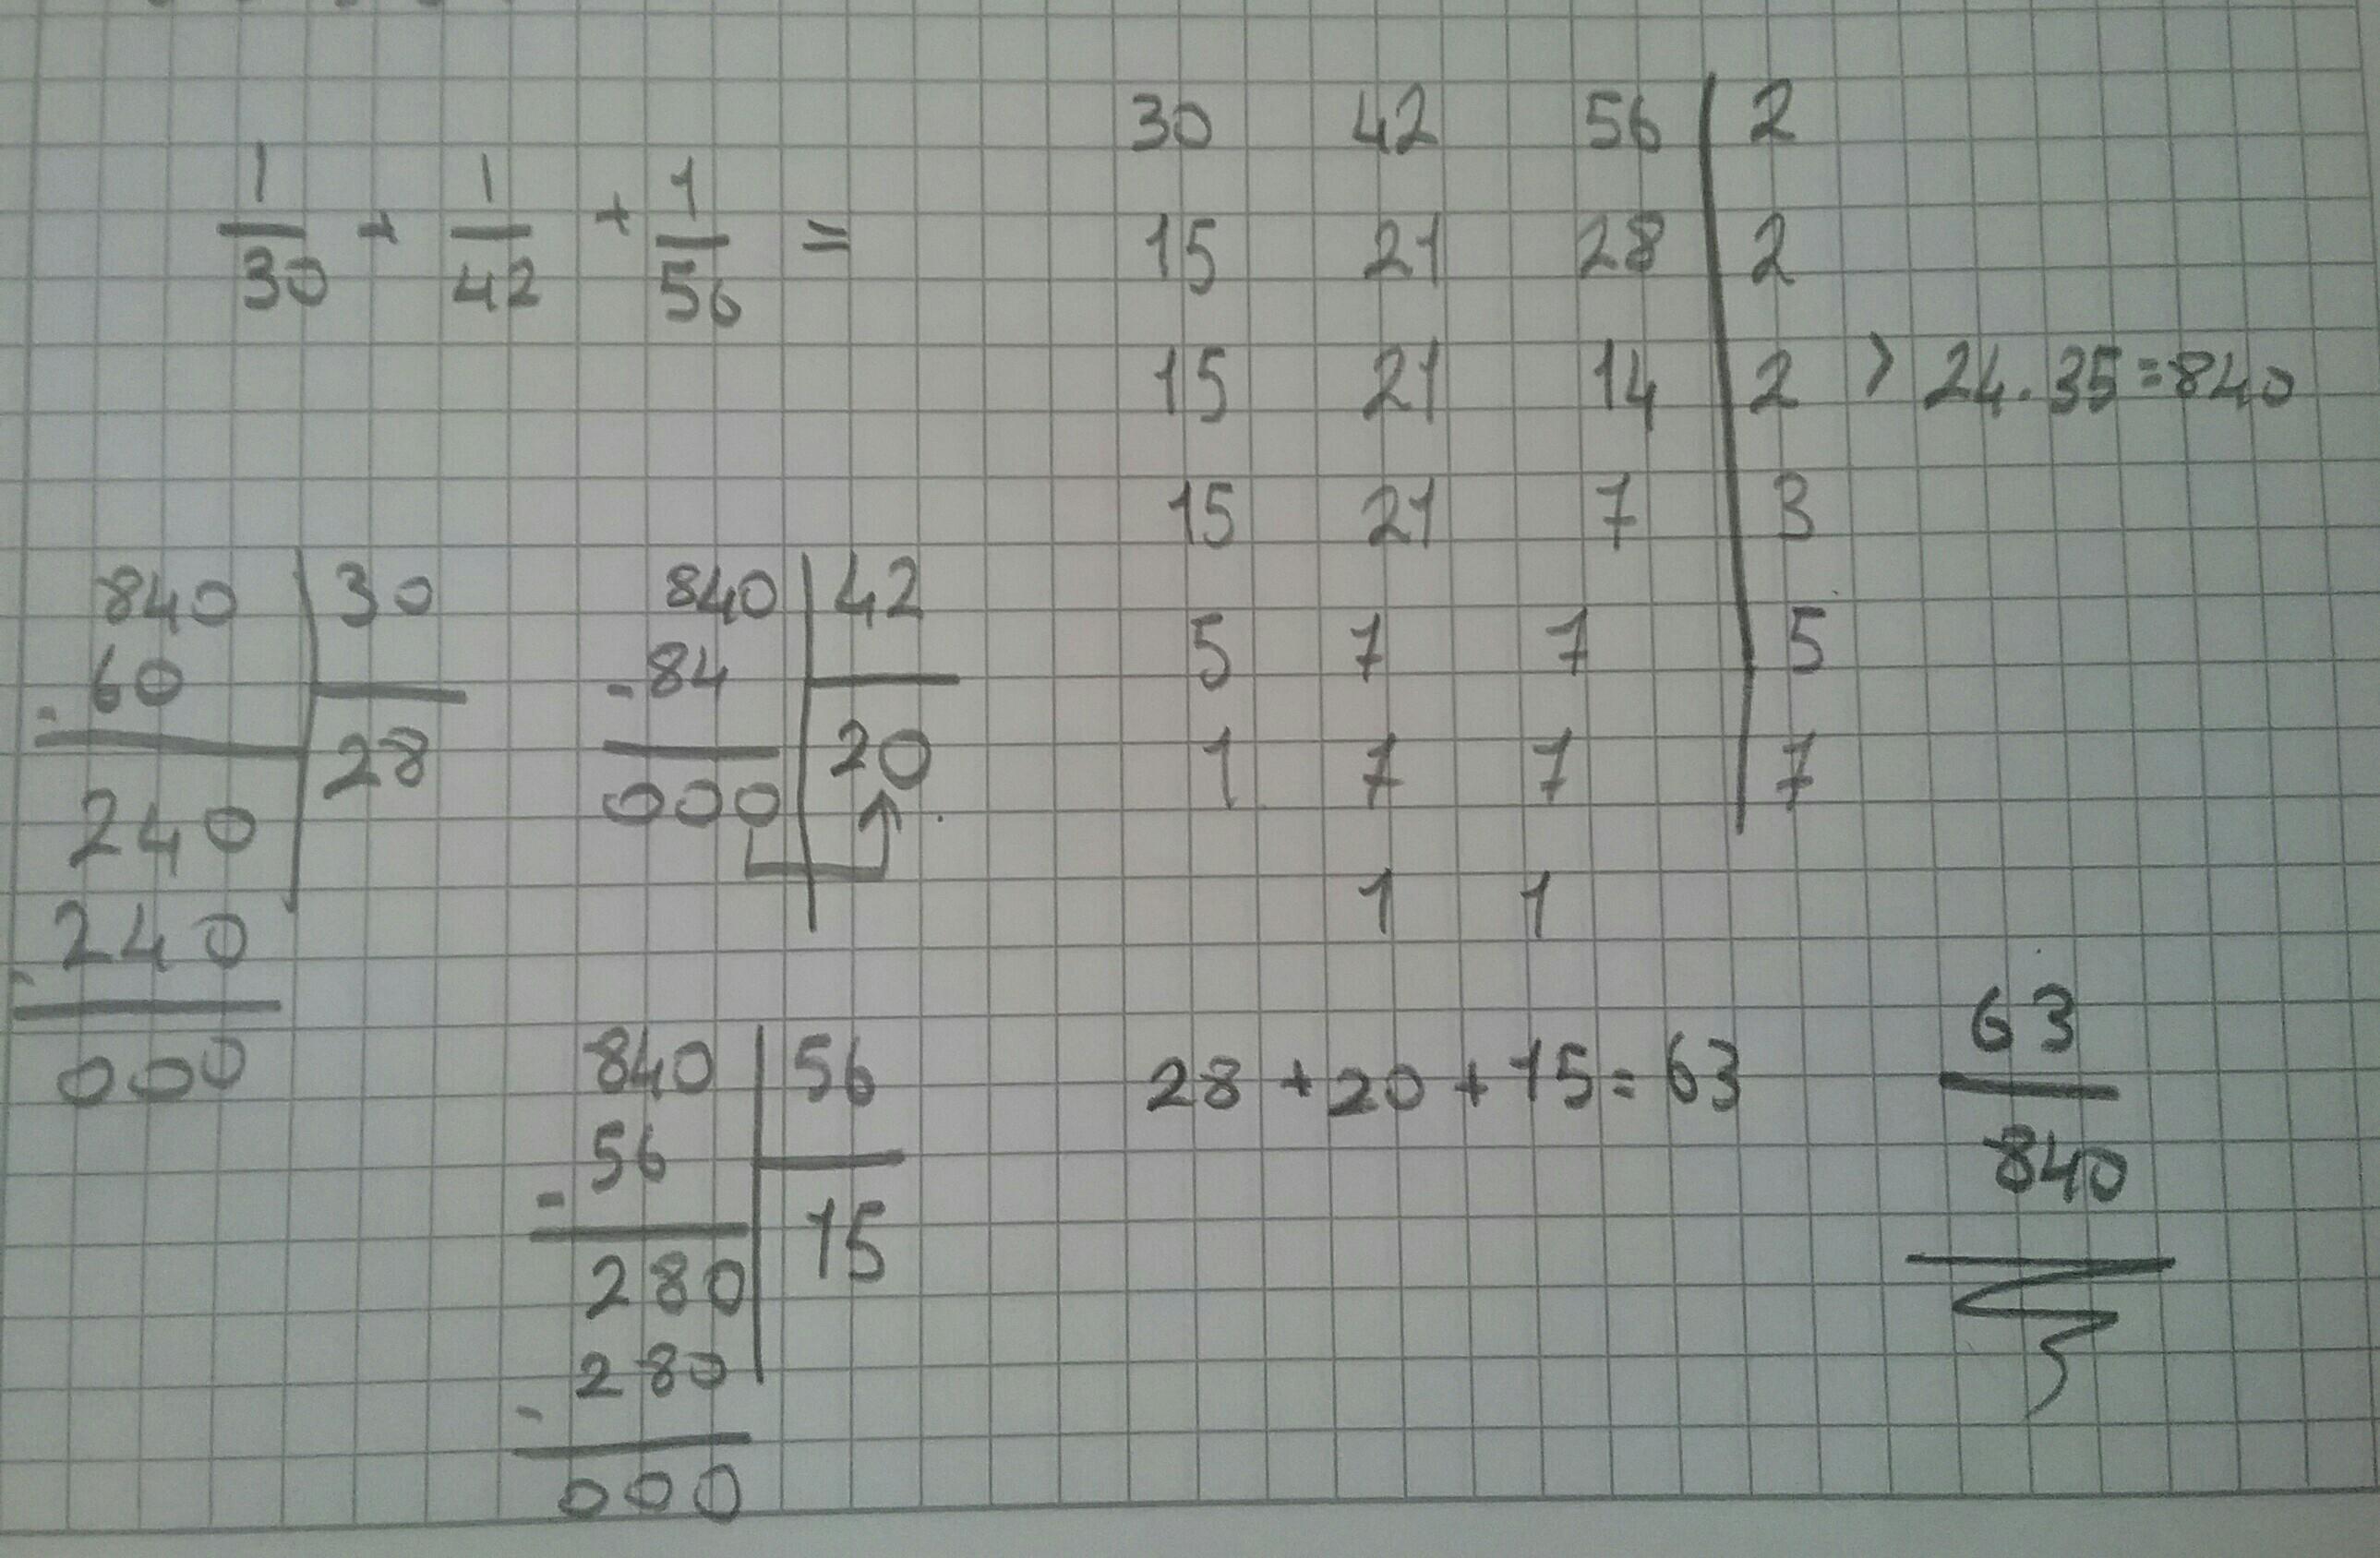 1/30 + 1/42 + 1/56 =
30 42 56 | 2
15 21 28 | 2
15 21 14 | 2 > 24.35=840
15 21 7 | 3
5 7 7 | 5
1 7 7 | 7
1 1
840 | 30
- 60
28
240
- 240
000
840 | 42
- 84
20
000
840 | 56
- 56
15
280
- 280
000
28 + 20 + 15 = 63
63/840